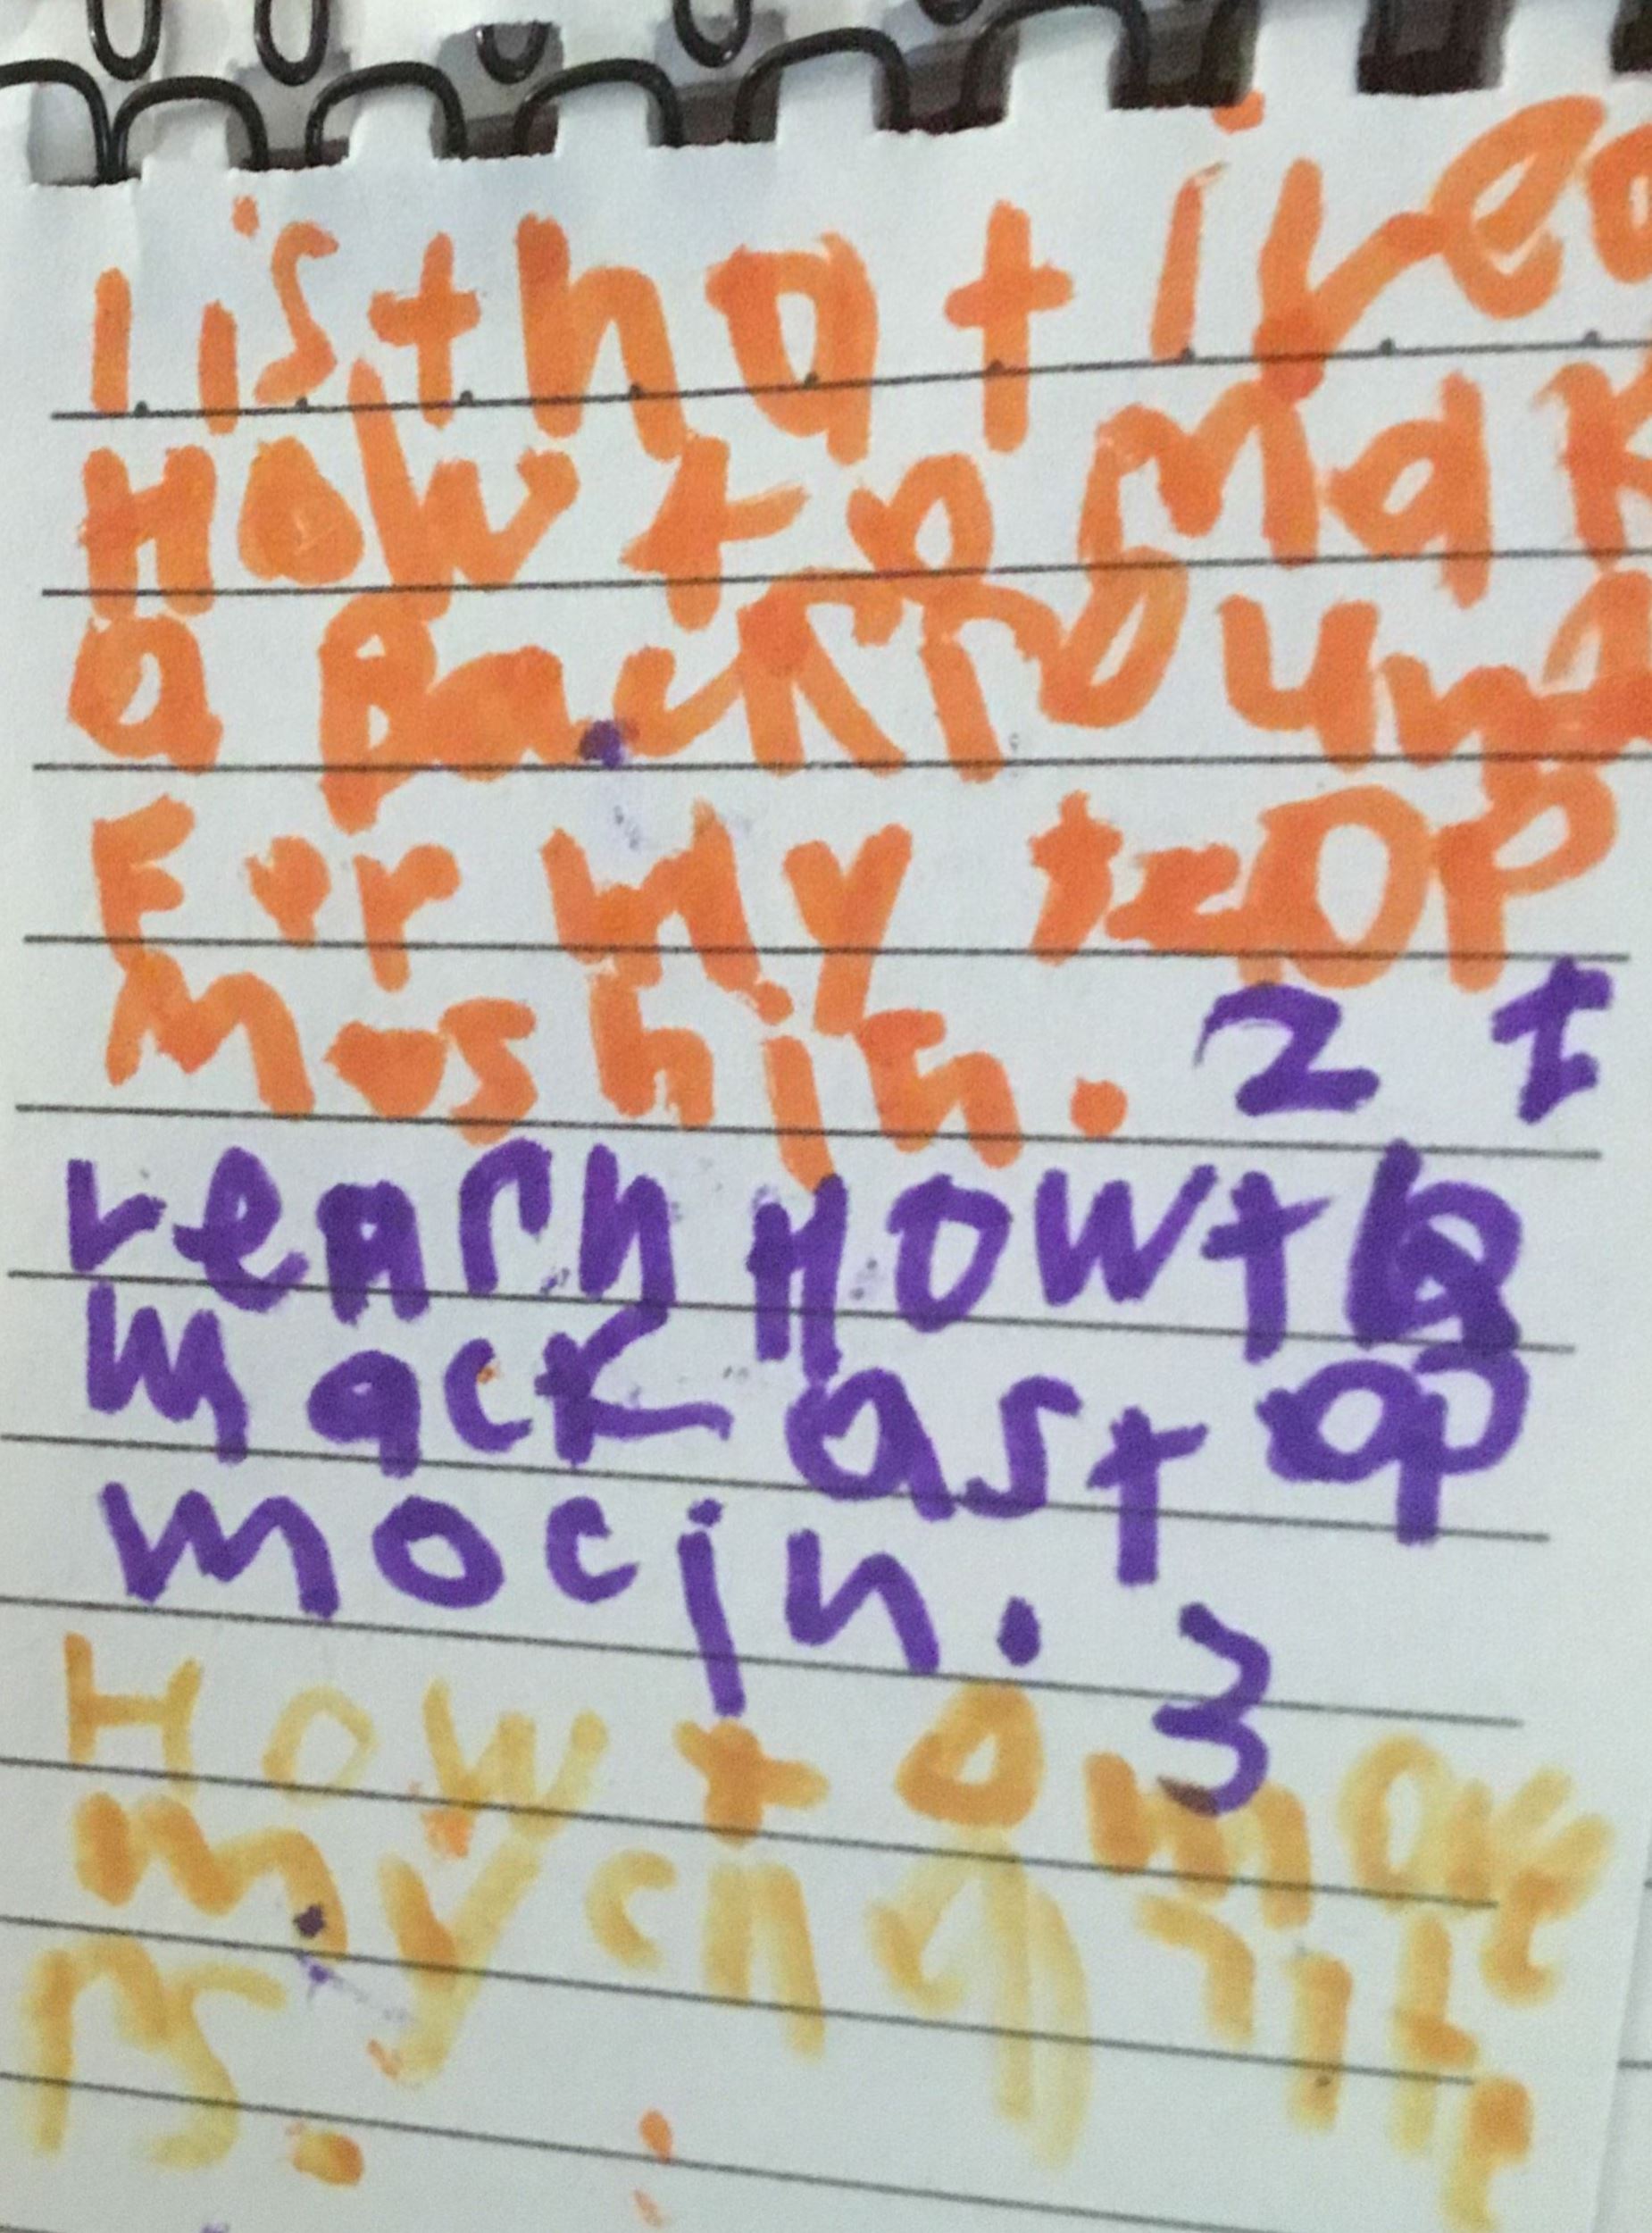 list hat i lea
How to mak
a Backround
For my stop
moshin. 2 t
learn How to
mack a stop
mocin. 3
How to make
my